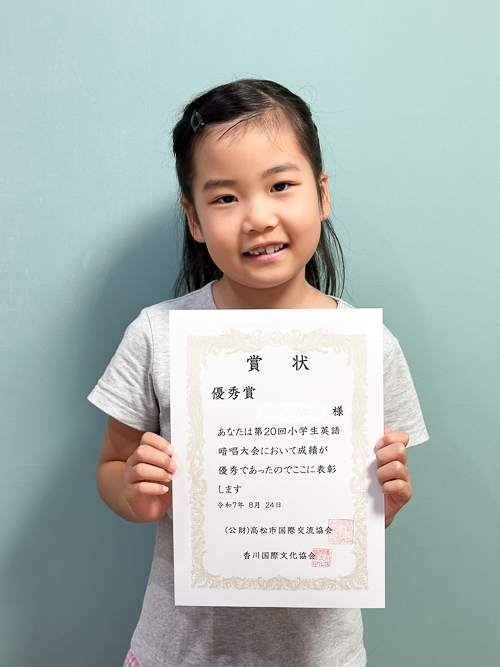 賞状
優秀賞
様
あなたは第20回小学生英語
暗唱大会において成績が
優秀であったのでここに表彰
します
令和7年 8月 24日
(公財)高松市国際交流協会
香川国際文化協会